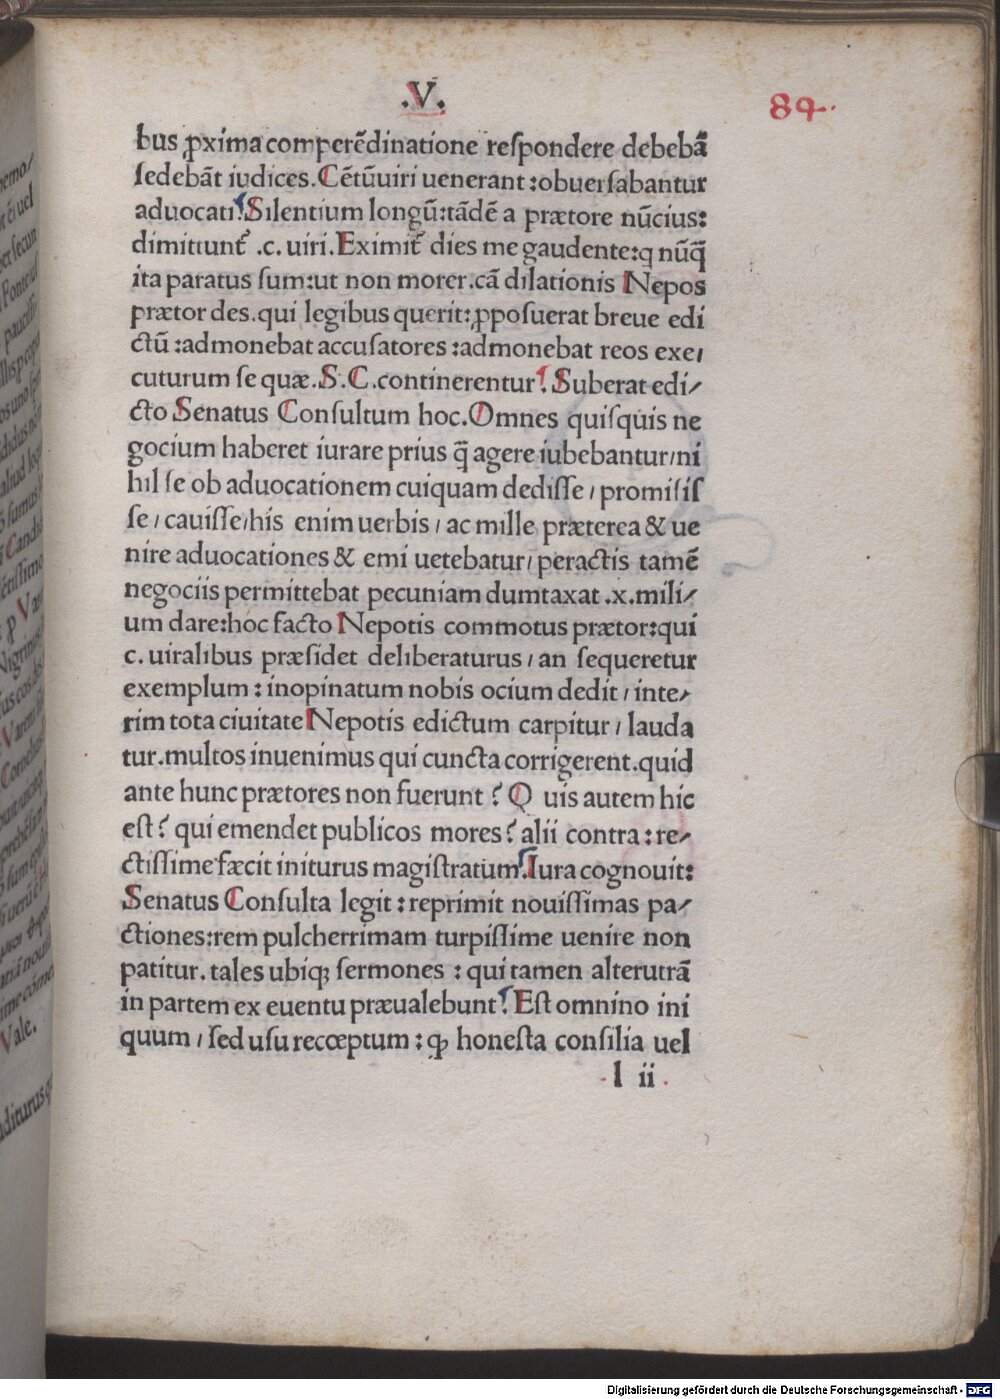 .V.
84.
bus ꝓxima comperẽdinatione reſpondere debebã
ſedebãt iudices.Cẽtũuiri uenerant:obuerſabantur
aduocati.Silentium longũ:tãdẽ a prætore nũcius:
dimittunt᷑ .c. uiri.Eximit᷑ dies me gaudente:q nũq̃
ita paratus ſum:ut non morer.cã dilationis Nepos
prætor des.qui legibus querit:ꝓpoſuerat breue edi
ctũ :admonebat accuſatores :admonebat reos exe/
cuturum ſe quæ.S.C.continerentur.Suberat edi/
cto Senatus Conſultum hoc.Omnes quiſquis ne
gocium haberet iurare prius q̃ agere iubebantur/ni
hil ſe ob aduocationem cuiquam dediſſe / promiſiſ
ſe / cauiſſe/his enim uerbis / ac mille præterea & ue
nire aduocationes & emi uetebatur/ peractis tamẽ
negociis permittebat pecuniam dumtaxat .x.mili/
um dare:hoc facto Nepotis commotus prætor:qui
c. uiralibus præſidet deliberaturus / an ſequeretur
exemplum : inopinatum nobis ocium dedit / inte/
rim tota ciuitate Nepotis edictum carpitur / lauda
tur.multos inuenimus qui cuncta corrigerent.quid
ante hunc prætores non fuerunt ? Q uis autem hic
eſt? qui emendet publicos mores? alii contra: re/
ctiſſime fæcit initurus magiſtratum.Iura cognouit:
Senatus Conſulta legit : reprimit nouiſſimas pa/
ctiones:rem pulcherrimam turpiſſime uenire non
patitur. tales ubiqꝫ ſermones : qui tamen alterutrã
in partem ex euentu præualebunt. Eſt omnino ini
quum / ſed uſu recœptum : ꝙ honeſta conſilia uel
l ii
Vale.
Digitalisierung gefördert durch die Deutsche Forschungsgemeinschaft - DFG